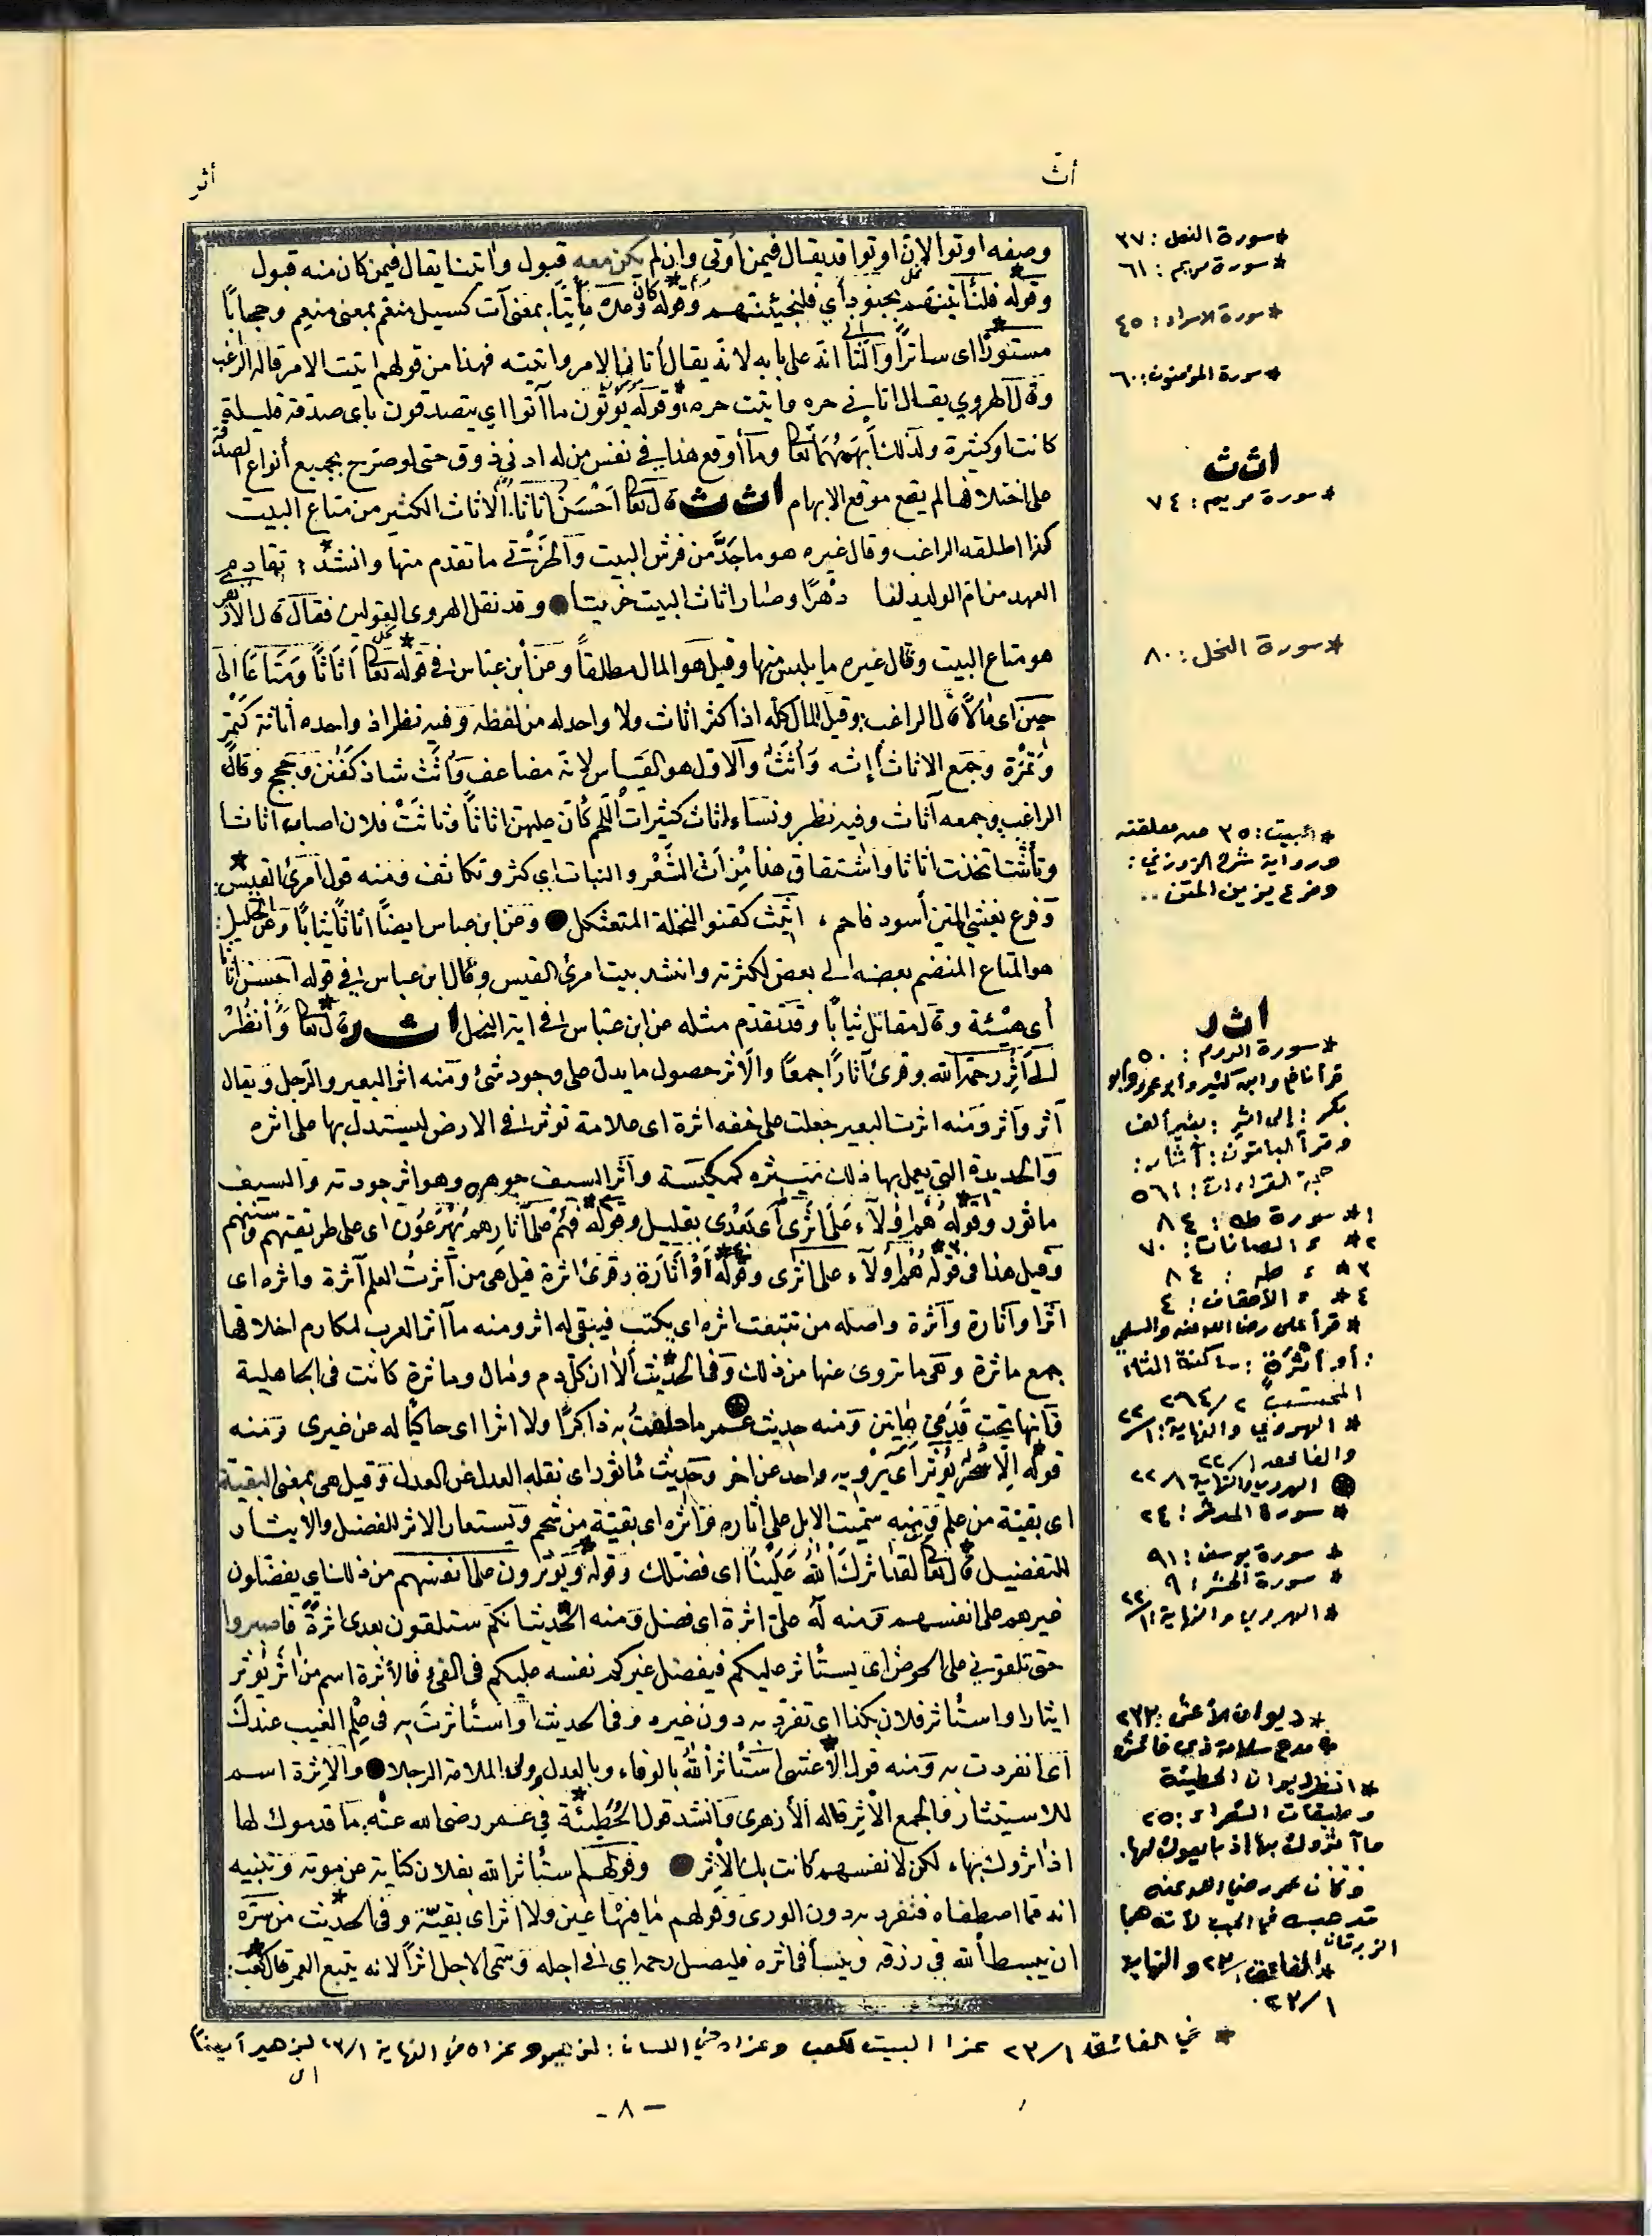 أثّ
أثر
وصفه اوتوا لان اوتوا قد يقال فيمن أوتى وان لم يكن معه قبول وآتينا يقال فيمن كان منه قبول
وقوله فلنأتينهم بجنود أي فلنجيئنهم وقوله كان وعده مأتيا بمعنى آت كسيل منعم بمعنى منعم وحجابًا
مستورًا اى ساترًا والثانى انه على بابه لانه يقال أتانى الامر واتيته فهذا من قولهم اتيت الامر قاله الراغب
وقال الهروي يقال اتانى خبره واتيت خبره وقوله يؤتون ما آتوا اي يتصدقون باى صدقة قليلة
كانت او كثيرة ولذلك أبهم تعالى وما أوقع هذا فى نفس من له ادنى ذوق حتى لو صرّح بجميع أنواع الصدقة
على اختلافها لم يقع موقع الابهام اث ث قال تعالى احسن اثاثا. الاثاث الكثير من متاع البيت
كذا اطلقه الراغب وقال غيره هو ما جدّ من فرش البيت والخرثى ما تقدم منها وانشد: تقادم
العهد من ام الوليد لنا دهرًا وصار اثاث البيت خرثيا وقد نقل الهروى القولين فقال قال الازهرى
هو متاع البيت وقال غيره ما يلبس منها وقيل هو المال مطلقاً وعن ابن عباس فى قوله تعالى اثاثاً ومتاعًا الى
حين اى مالا قال الراغب وقيل للمال كله اذا كثر اثاث ولا واحد له من لفظه وفيه نظر اذ واحده أثاثة كتمر
وتمرة وجمع الاثاث أإثه وأثث والاول هو القياس لانه مضاعف وأثث شاذ كعنن وحجج وقال
الراغب وجمعه آثاث وفيه نظر ونساء اثاث كثيرات اللحم كأن عليهن اثاثاً وتأثث فلان اصاب اثاثا
وتأثثت اتخذت اثاثا واشتقاق هذا من اث الشعر والنبات اي كثر وتكاثف ومنه قول امرئ القيس:
وفرع يغشي المتن أسود فاحم، اثيث كقنو النخلة المتعثكل وعن ابن عباس ايضًا اثاثًا ثيابًا وعن الخليل:
هو المتاع المنضم بعضه الى بعض لكثرته وانشد بيت امرئ القيس وقال ابن عباس فى قوله احسن اثاثا
أى هيئة وقال مقاتل ثيابًا وقد تقدم مثله عن ابن عباس فى اية النحل اث ر قال تعالى وانظر
الى أثر رحمة الله وقرئ آثار جمعًا والأثر حصول ما يدل على وجود شئ ومنه اثر البعير والرجل ويقال
أثر وآثر ومنه اثرت البعير جعلت على خفه اثرة اى علامة تؤثر فى الارض ليستدل بها على اثره
والحديدة التي يعمل بها ذلك ميثره كمكيسة وأثر السيف جوهره وهو اثر جودته والسيف
ماثور وقوله هم اولآء على اثرى أى بعدى بقليل وقوله فهم على آثارهم يهرعون اى على طريقتهم وسننهم
وقيل هذا فى قوله هم اولآء على اثرى وقوله أو اثارة وقرئ اثرة قيل هى من آثرت العلم آثرة واثره اى
اثرا وآثارة وآثرة واصله من تتبعت اثره اى يكتب فيبقى له اثر ومنه مآثر العرب لمكارم اخلاقها
جمع ماثرة وهى ما تروى عنها من ذلك وفى الحديث ألا ان كل دم ومال وماثرة كانت فى الجاهلية
فإنها تحت قدمي هاتين ومنه حديث عمر ما حلفت به ذاكرًا ولا اثرا اى حاكيًا له عن غيرى ومنه
قوله الا سحر يؤثر أى يرويه واحد عن اخر وحديث مأثور اى نقله العدل عن العدل وقيل هى بمعنى البقية
اى بقية من علم ومنه سمنت الابل على أثاره وأثره اى بقية من شحم ويستعار الاثر للفضل والايثار
للتفضيل قال تعالى لقد اثرك الله علينا اى فضلك وقوله ويؤثرون على انفسهم من ذلك اي يفضلون
غيرهم على انفسهم ومنه له علىّ اثرة اى فضل ومنه الحديث انكم ستلقون بعدى اثرة فاصبروا
حتى تلقوني على الحوض اى يستأثر عليكم فيفضل غيركم نفسه عليكم فى الفئ فالأثرة اسم من اثر يؤثر
ايثارا واستأثر فلان بكذا اى تفرد به دون غيره وفى الحديث او استأثرت به فى علم الغيب عندك
اى انفردت به ومنه قول الأعشى استأثر الله بالوفاء وبالعدل وولى الملامة الرجلا والإثرة اسم
للاستيثار فالجمع الأثير قاله الأزهرى وانشد قول الحطيئة في عمر رضى الله عنه: ما قدموك لها
اذ اثروك بها، لكن لانفسهم كانت بك الأثر وقولهم استأثر الله بفلان كناية عن موته وتنبيه
انه مما اصطفاه فتفرد به دون الورى وقولهم ما فيها عين ولا اثر اى بقية وفى الحديث من سره
ان يبسط الله فى رزقه وينسأ فى اثره فليصل رحمه اي فى اجله وسمى الاجل اثرًا لانه يتبع العمر قال كعب:
* سورة النمل: ٣٧
* سورة مريم: ٦١
* سورة الاسراء: ٤٥
* سورة المؤمنون: ٦٠
اث ث
* سورة مريم: ٧٤
* سورة النحل: ٨٠
* البيت: ٣٥ من معلقته
ورواية شرح الزوزني:
وفرع يزين المتن ..
اث ر
* سورة الروم: ٥٠
قرأ نافع وابن كثير وأبو عمرو وأبو
بكر: إلى اثر: بغير ألف
وقرأ الباقون: آثار:
حجة القراءات: ٥٦١
١* سورة طه: ٨٤
٢* = الصافات: ٧٠
٣* = طه: ٨٤
٤* = الأحقاف: ٤
* قرأ على رضى الله عنه والسلمي
: أو أثرة: ساكنة الثاء
المحتسب ٢/٢٦٤
* الهروي والنهاية: ١/٢٢
والفائق ١/٢٢
الهروي والنهاية ١/٢٢
* سورة المدثر: ٢٤
* سورة يوسف: ٩١
* سورة الحشر: ٩
* الهروي والنهاية: ١/٢٢
* ديوان الأعشى: ٢٣٣
* مدح سلامة ذي فائش
* انظر ديوان الحطيئة
وطبقات الشعراء: ٢٥
ما آثروك بها إذ بايعوك لها.
وكان عمر رضي الله عنه
قد حبسه في الجب لأنه هجا
الزبرقان
* الفائق ١/٢٣ والنهاية
١/٢٣
* في الفائق ١/٢٣ عزا البيت لكعب وعزاه في اللسان: لزهير وعزاه في النهاية ١/٢٣ لزهير أيضاً
- ٨ -